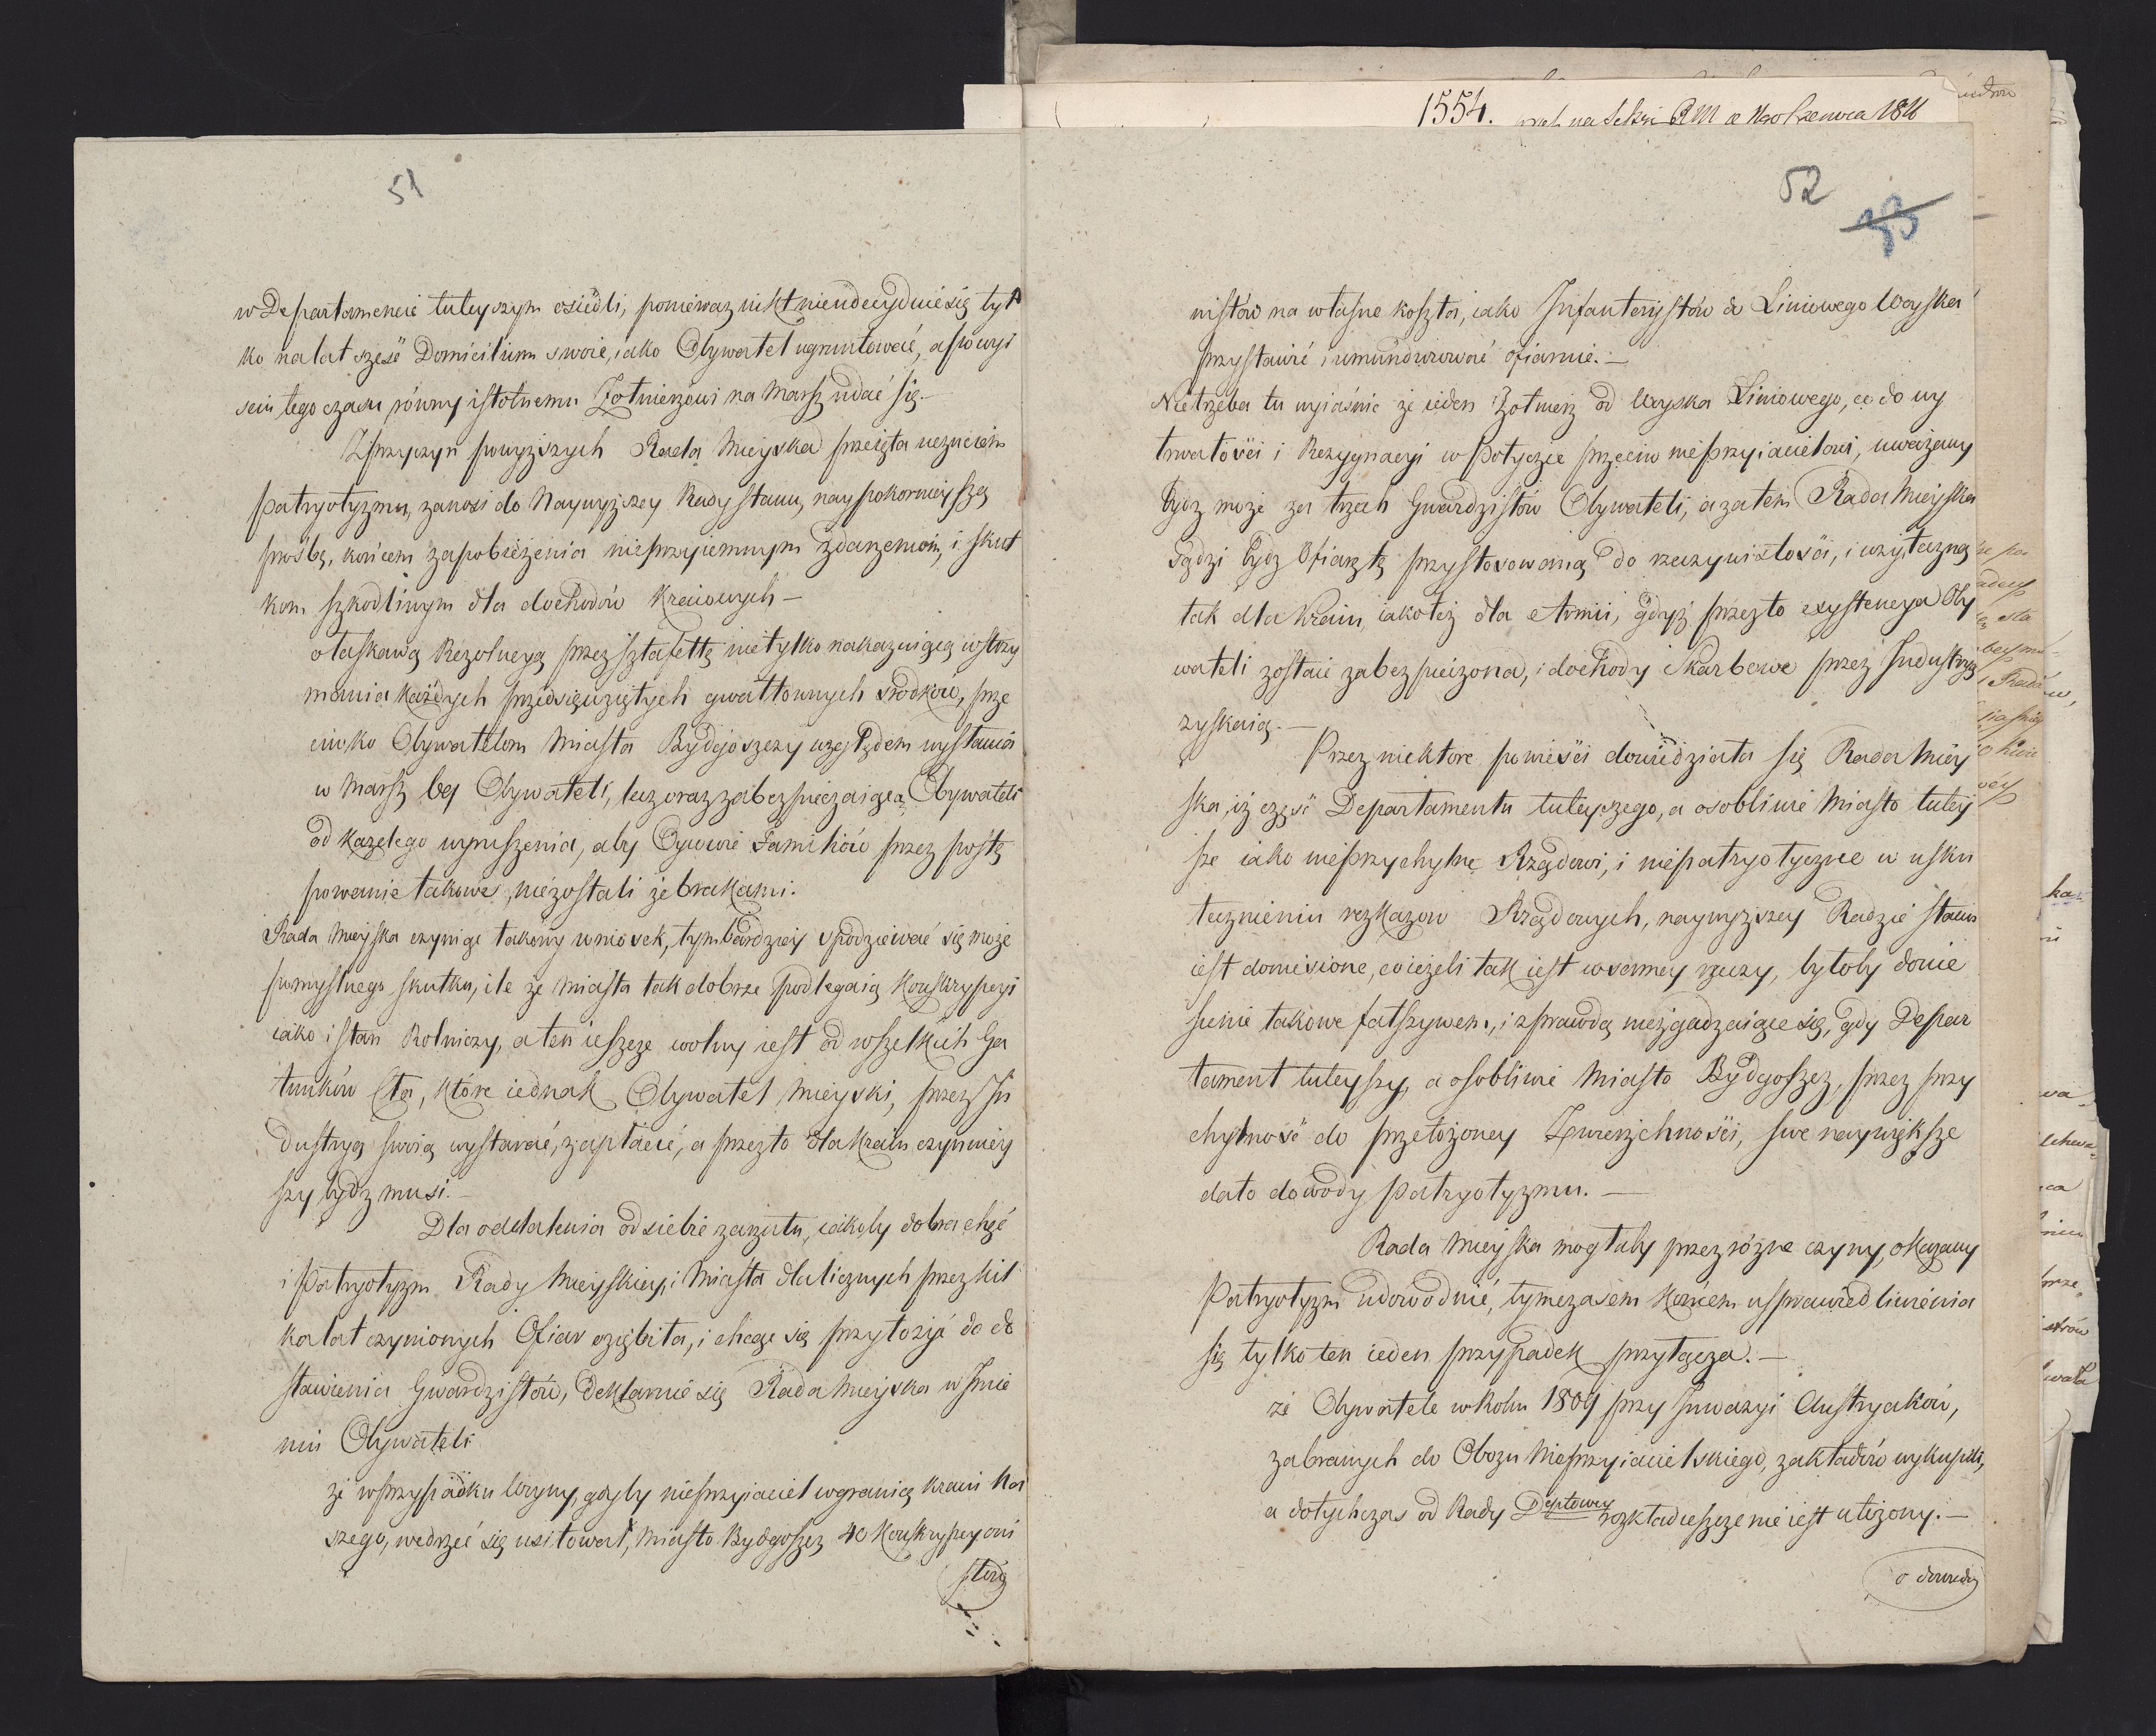 51
w Departamencie tuteyszym osiedli, ponieważ nikt nieudecyduie się tyl
ko na lat sześć Domicilium swoie, iako Obywatel ugruntować, a po wyi
ściu tego czasu równy istotnemu Zołnierzowi na Marsz udać się.
Z przyczyn powyższych Rada Mieyska przeięta uczuciem
Patryotyzmu, zanosi do Naywyższey Rady Stanu, naypokornieyszą
prośbę, końcem zapobieżenia nieprzyiemnym zdarzeniom, i skut
kom szkodliwym dla dochodów Kraiowych —
o łaskawą Rezolucyą przez sztafettę nietylko nakazuiącą wstrzy
mania każdych przedsięwziętych gwałtownych środków, prze
ciwko Obywatelom Miasta Bydgoszczy względem wysłania
w Marsz tej Obywateli, lecz oraz zabezpieczaiącą Obywateli
od każdego wyruszenia, aby Oycowie Familiów przez postę
powanie takowe, niezostali żebrakami.
Rada Mieyska czyniąc takowy wniosek, tym bardziey spodziewać się może
pomyslnego skutku, ile że Miasta tak dobrze podlegaią Konskrypcyi
iako i stan Rolniczy, a ten ieszcze wolny iest od wszelkich Ga
tunków Cła, które iednak Obywatel Mieyski, przez In
dustryą swoią wystarać, zapłacić, a przezto dla Kraiu czynniey
szy bydz musi. —
Dla oddalenia od siebie zarzutu, iakoby dobra chęć
i Patryotyzm Rady Mieyskiey, i Miasta dla licznych przez kil
ka lat czynionych Ofiar oziębła, i chcąc się przyłożyć do do
stawienia Gwardzistów, deklaruie się Rada Mieyska w Imie
niu Obywateli
że w przypadku Woyny, gdyby nieprzyiaciel w granicę kraiu Na
szego, wedrzeć się usiłował, Miasto Bydgoszcz 40 Konskrypcyoni
stów
1554.
52
nistów na własne koszta, iako Infanterystów do Liniowego Woyska
przystawić i umundurować ofiaruie. —
Nietrzeba tu wyiaśnić że ieden Zołnierz od Woyska Liniowego, co do wy
trwałości i Rezygnacyi w Potyczce przeciw nieprzyiacielowi, uważany
bydz może za trzech Gwardzistów Obywateli, a zatem Rada Mieyska
sądzi bydz Ofiarę tę przystosowaną do rzeczywistości, i użyteczną
tak dla Kraiu, iakoteż dla Armii, gdyż przezto exystencya Oby
wateli zostaie zabezpieczona, i dochody Skarbowe przez Industryą
zyskaią. —
Przez niektore powieści dowiedziała się Rada Miey
ska, iż część Departamentu tuteyszego, a osobliwie Miasto tutey
sze iako nieprzychylne Rządowi, i niepatryotyczne w usku
tecznieniu rozkazow Rządowych, naywyższey Radzie Stanu
iest doniesione, co ieżeli tak iest w samey rzeczy, byłoby donie
sienie takowe fałszywem, i z prawdą niezgadzaiące się, gdy Depar
tament tuteyszy, a osobliwie Miasto Bydgoszcz, przez przy
chylność do przełożoney Zwierzchności, swe naywiększe
dało dowody Patryotyzmu. —
Rada Mieyska mogłaby przez różne czyny, okazany
Patryotyzm udowodnić, tymczasem końcem usprawiedliwienia
się tylko ten ieden przypadek przyłącza. —
że Obywatele w Roku 1809 przy Inwazyi Austryaków,
zabranych do Obozu Nieprzyiacielskiego, zakładów wykupili,
a dotychczas od Rady Deptowey rozkład ieszcze nie iest ułożony. —
o dowody